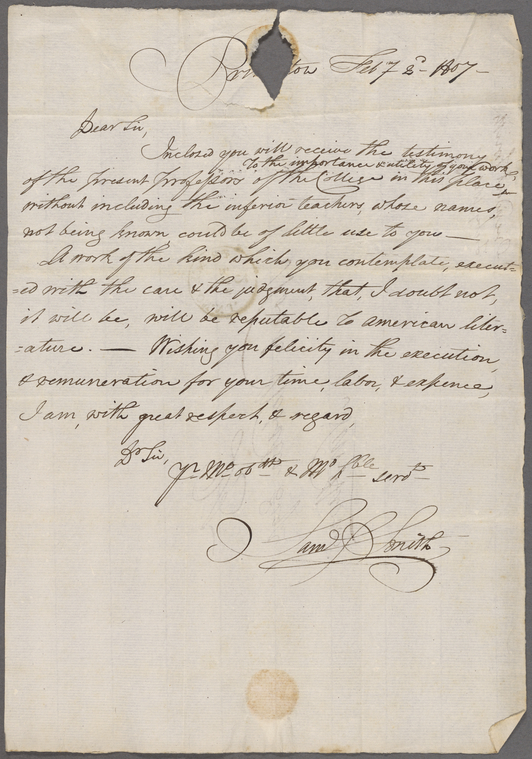 Pr ton Feby 2d 1807 -
Dear Sir,
Inclosed you will receive the testimony
to the importance & utility of your work,
of the present Professors of the College in this place,
without including the inferior teachers, whose names,
not being known could be of little use to you —
A work of the kind which you contemplate, execut-
=ed with the care & the judgment, that, I doubt not,
it will be, will be reputable to american liter-
=ature. — Wishing you felicity in the execution,
& remuneration for your time, labor, & expence,
I am, with great respect, & regard,
Dr Sir,
Yr Mo. obdt & Mo hble servt
Saml S Smith